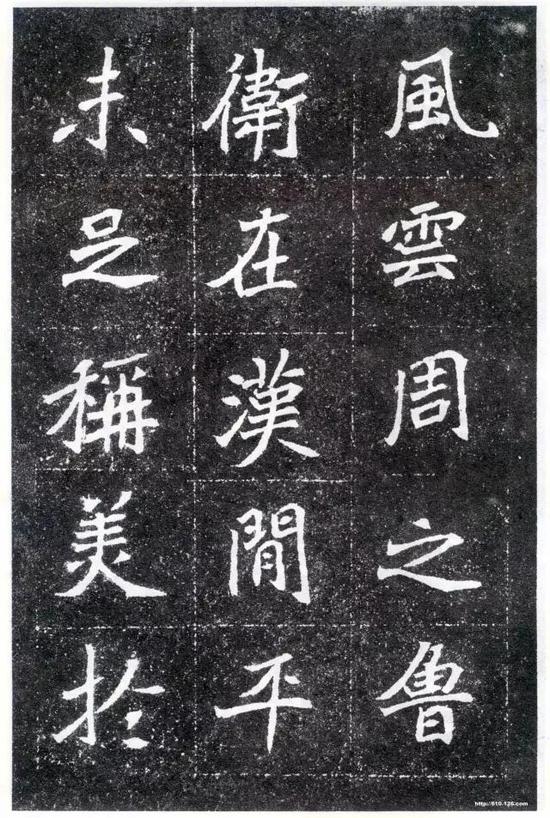 風雲周之魯
衛在漢間平
未足稱美扵
http://510.126.com